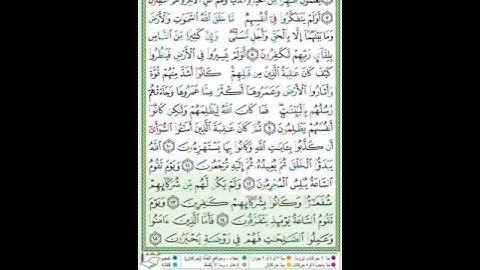 يَعْلَمُونَ ظَٰهِرًا مِّنَ ٱلْحَيَوٰةِ ٱلدُّنْيَا وَهُمْ عَنِ ٱلْءَاخِرَةِ هُمْ غَٰفِلُونَ
٧ أَوَلَمْ يَتَفَكَّرُوا۟ فِىٓ أَنفُسِهِم مَّا خَلَقَ ٱللَّهُ ٱلسَّمَٰوَٰتِ وَٱلْأَرْضَ
وَمَا بَيْنَهُمَآ إِلَّا بِٱلْحَقِّ وَأَجَلٍ مُّسَمًّى وَإِنَّ كَثِيرًا مِّنَ ٱلنَّاسِ
بِلِقَآئِ رَبِّهِمْ لَكَٰفِرُونَ ٨ أَوَلَمْ يَسِيرُوا۟ فِى ٱلْأَرْضِ فَيَنظُرُوا۟
كَيْفَ كَانَ عَٰقِبَةُ ٱلَّذِينَ مِن قَبْلِهِمْ كَانُوٓا۟ أَشَدَّ مِنْهُمْ قُوَّةً
وَأَثَارُوا۟ ٱلْأَرْضَ وَعَمَرُوهَآ أَكْثَرَ مِمَّا عَمَرُوهَا وَجَآءَتْهُمْ
رُسُلُهُم بِٱلْبَيِّنَٰتِ فَمَا كَانَ ٱللَّهُ لِيَظْلِمَهُمْ وَلَٰكِن كَانُوٓا۟
أَنفُسَهُمْ يَظْلِمُونَ ٩ ثُمَّ كَانَ عَٰقِبَةَ ٱلَّذِينَ أَسَٰٓـُٔوا۟ ٱلسُّوٓأَىٰٓ
أَن كَذَّبُوا۟ بِـَٔايَٰتِ ٱللَّهِ وَكَانُوا۟ بِهَا يَسْتَهْزِءُونَ ١٠ ٱللَّهُ
يَبْدَؤُا۟ ٱلْخَلْقَ ثُمَّ يُعِيدُهُۥ ثُمَّ إِلَيْهِ تُرْجَعُونَ ١١ وَيَوْمَ تَقُومُ
ٱلسَّاعَةُ يُبْلِسُ ٱلْمُجْرِمُونَ ١٢ وَلَمْ يَكُن لَّهُم مِّن شُرَكَآئِهِمْ
شُفَعَٰٓؤُا۟ وَكَانُوا۟ بِشُرَكَآئِهِمْ كَٰفِرِينَ ١٣ وَيَوْمَ
تَقُومُ ٱلسَّاعَةُ يَوْمَئِذٍ يَتَفَرَّقُونَ ١٤ فَأَمَّا ٱلَّذِينَ ءَامَنُوا۟
وَعَمِلُوا۟ ٱلصَّٰلِحَٰتِ فَهُمْ فِى رَوْضَةٍ يُحْبَرُونَ ١٥